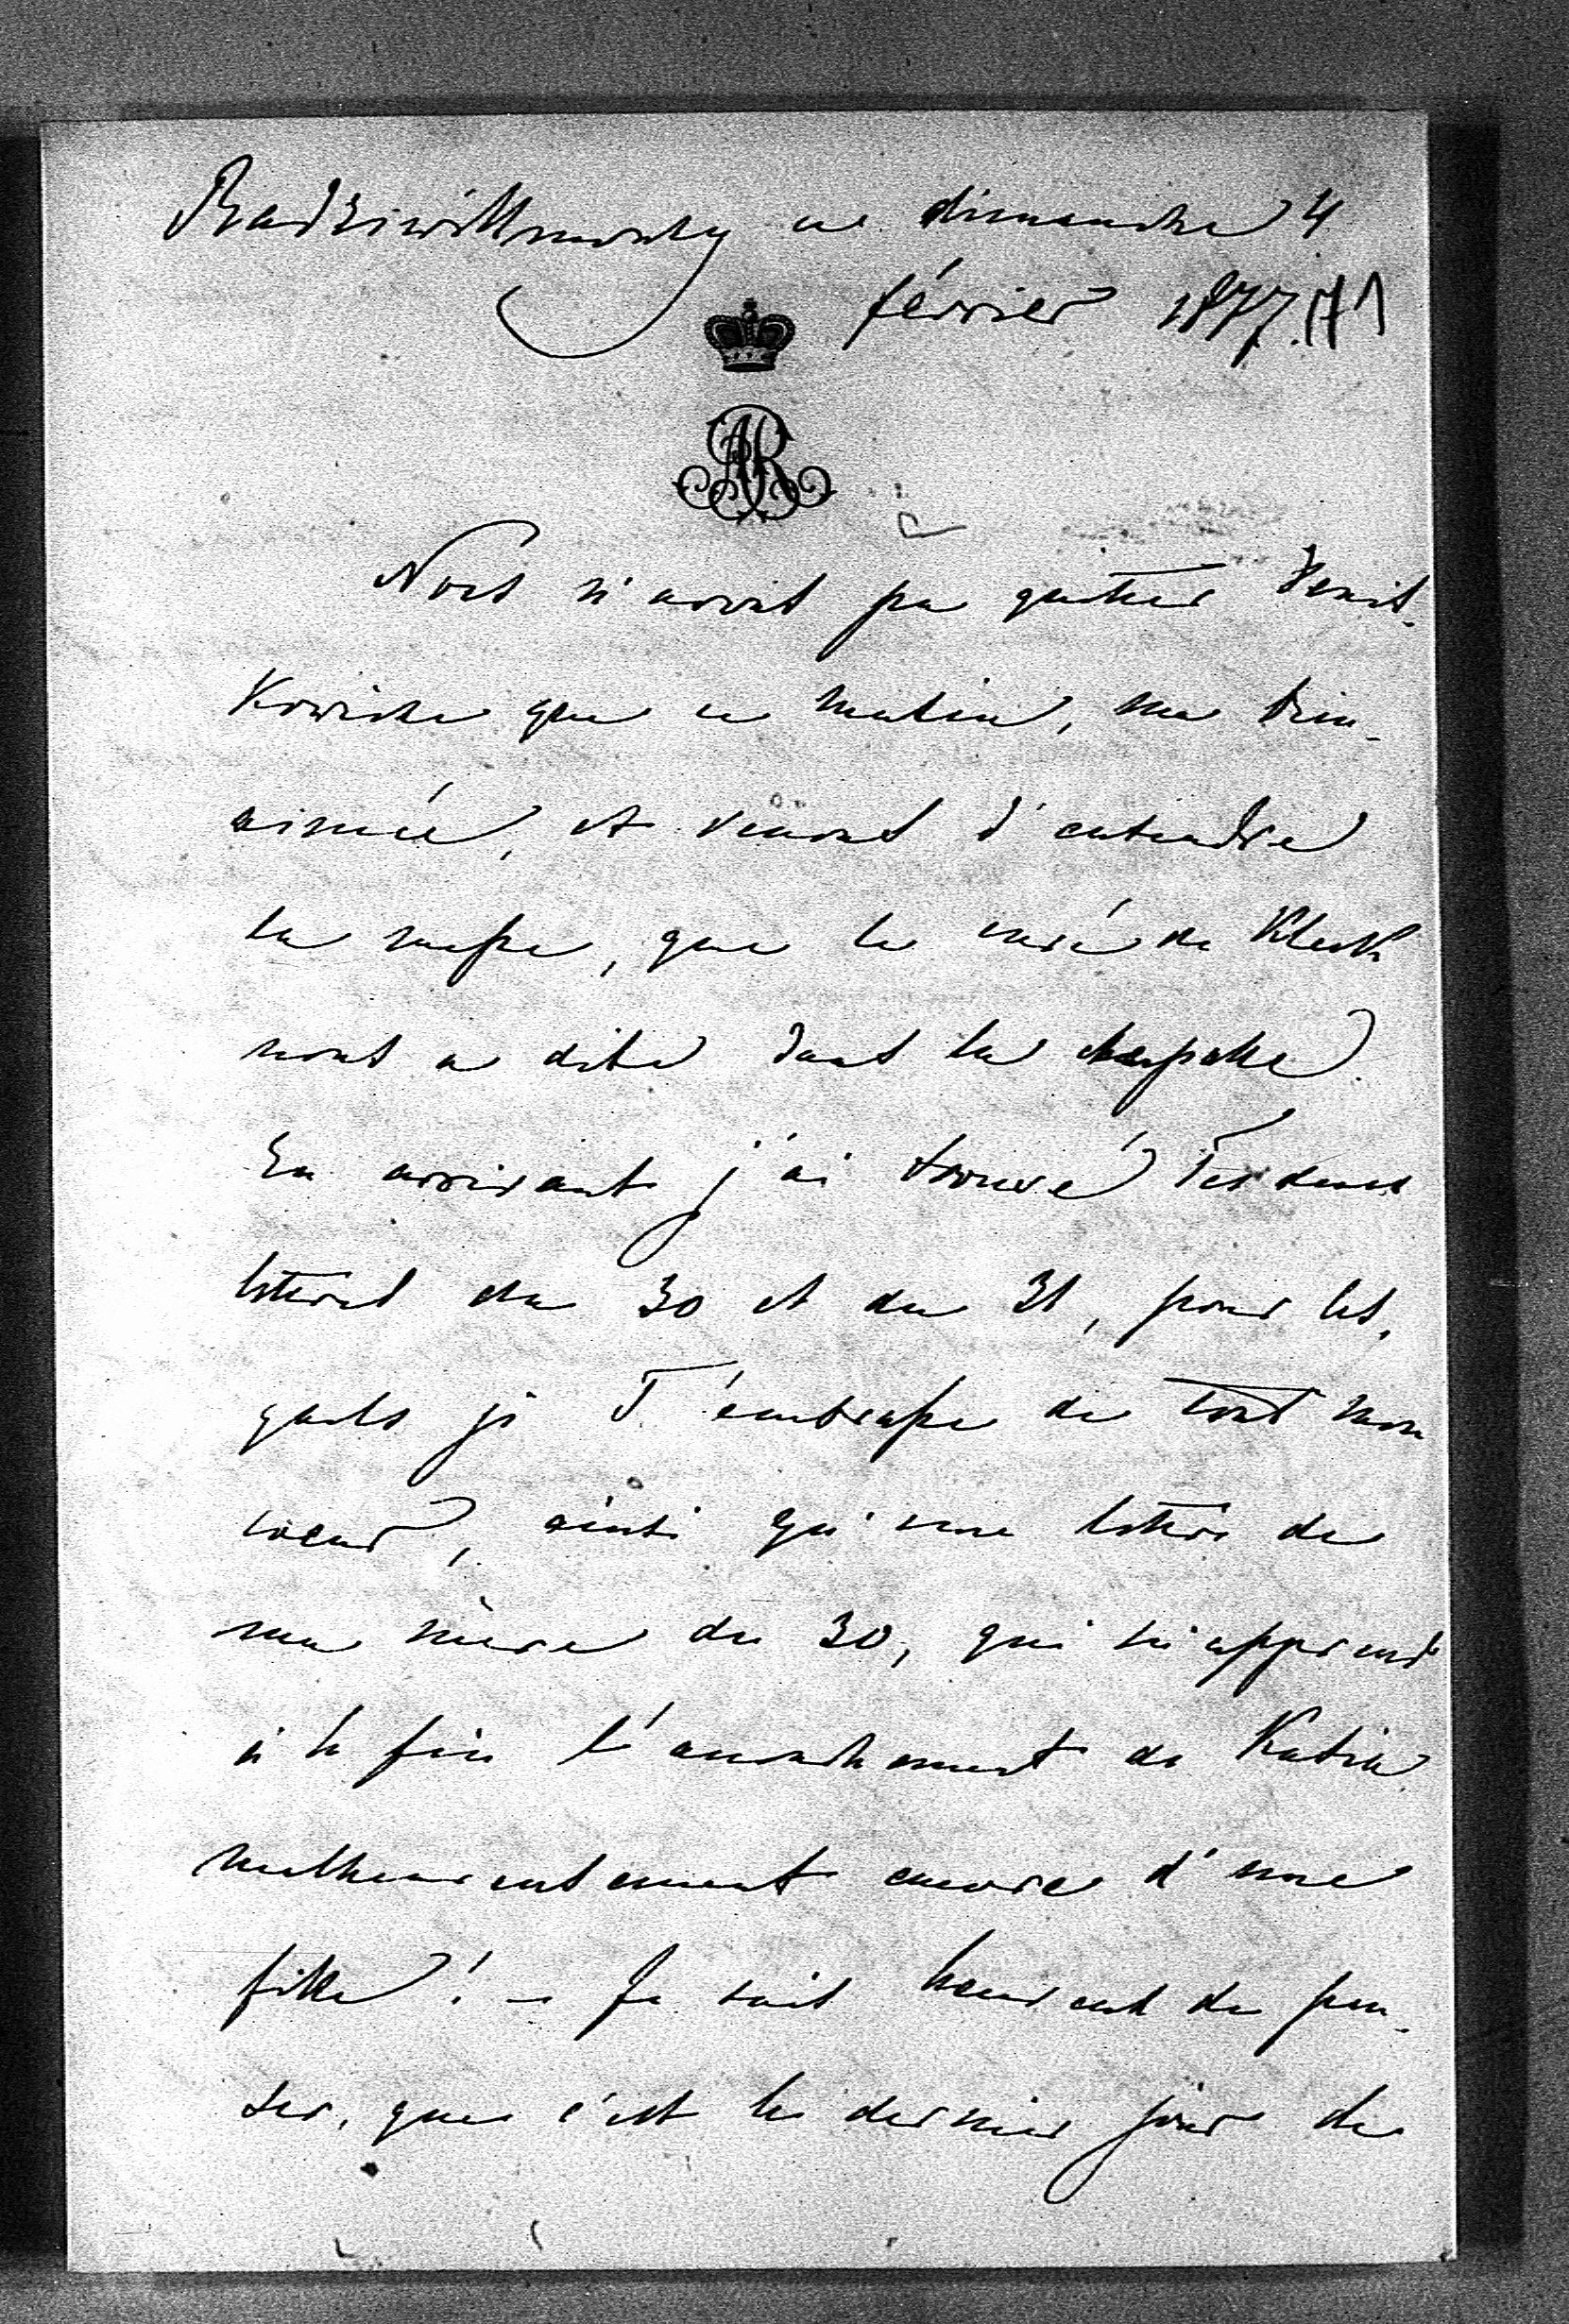 Radziwillmonty ce dimanche 4
février 1877. 171
AR
Nous n'avons pu quitter Denis-
Kowiche que ce matin, ma bien-
aimée, et venons d'entendre
la messe, que le curé de Kletzk
nous a dite dans la chapelle.
En arrivant j'ai trouvé Tes deux
lettres du 30 et du 31, pour les-
quels je T'embrasse de tout mon
coeur, ainsi qu'une lettre de
ma mère du 30, qui m'apprend
à la fin l'accouchement de Katia
malheureusement encore d'une
fille! – Je suis heureux de pen-
ser, que c'est le dernier jour de